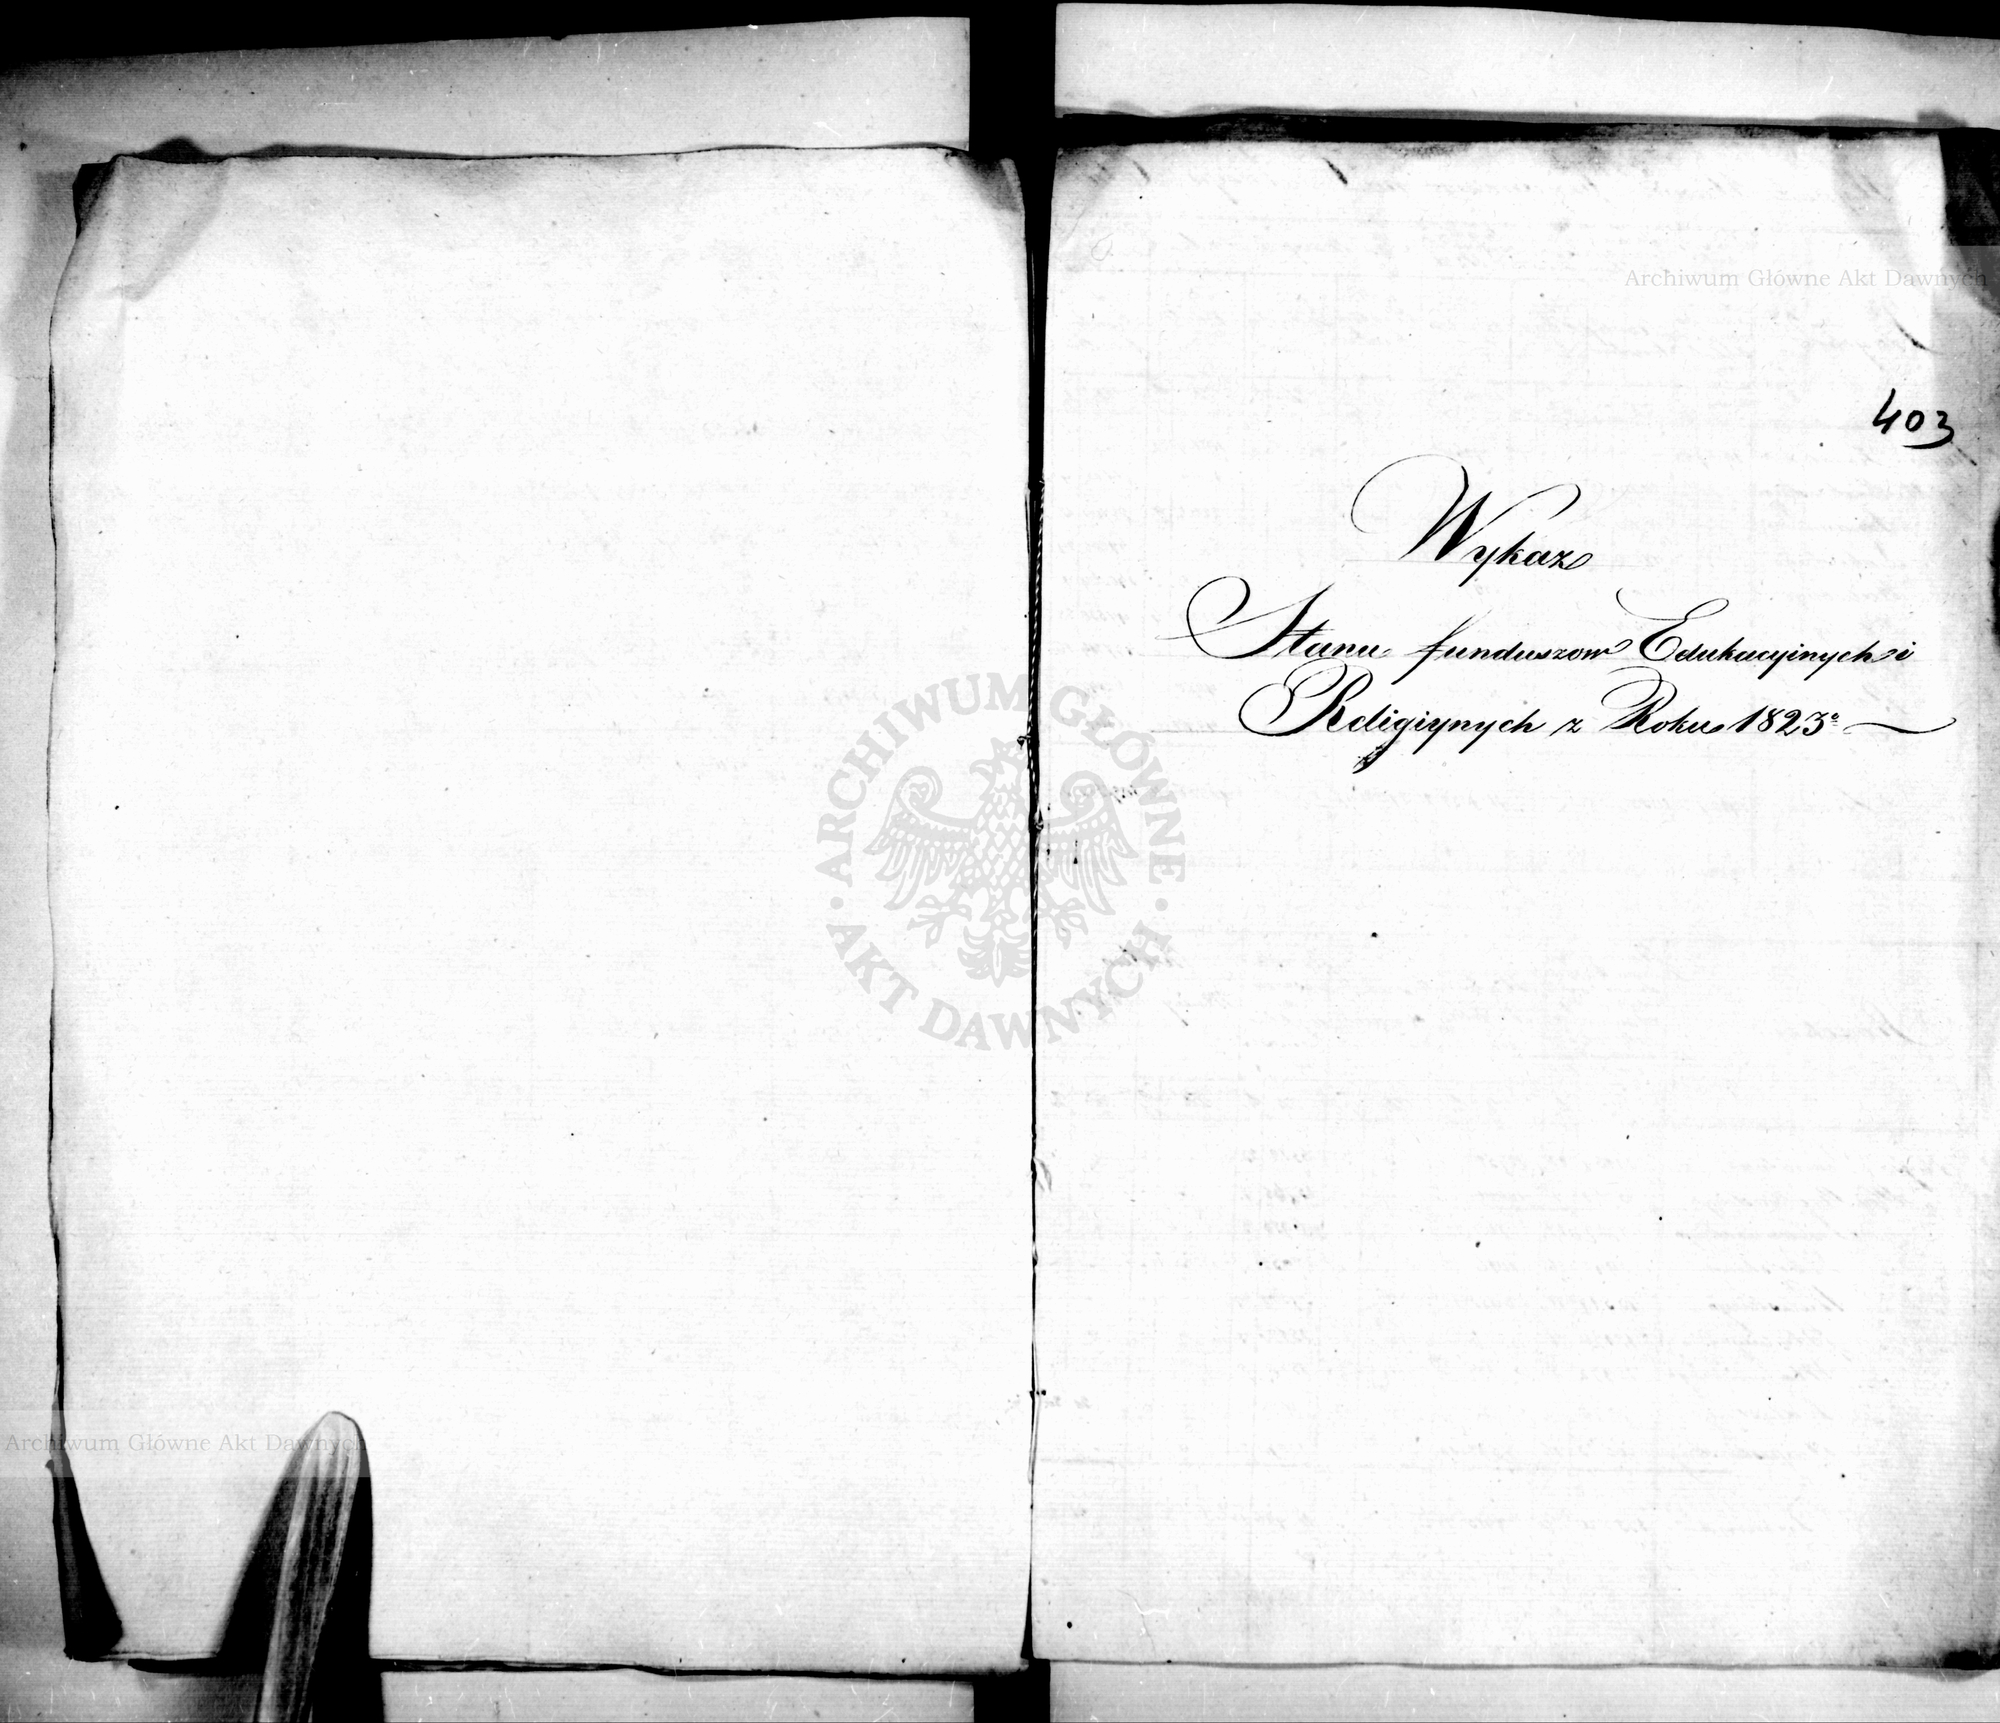 Archiwum Główne Akt Dawnych
403
Wykaz
Stanu funduszow Edukacyinych i
Religiynych z Roku 1823º
ARCHIWUM GŁÓWNE
AKT DAWNYCH
Archiwum Główne Akt Dawnych